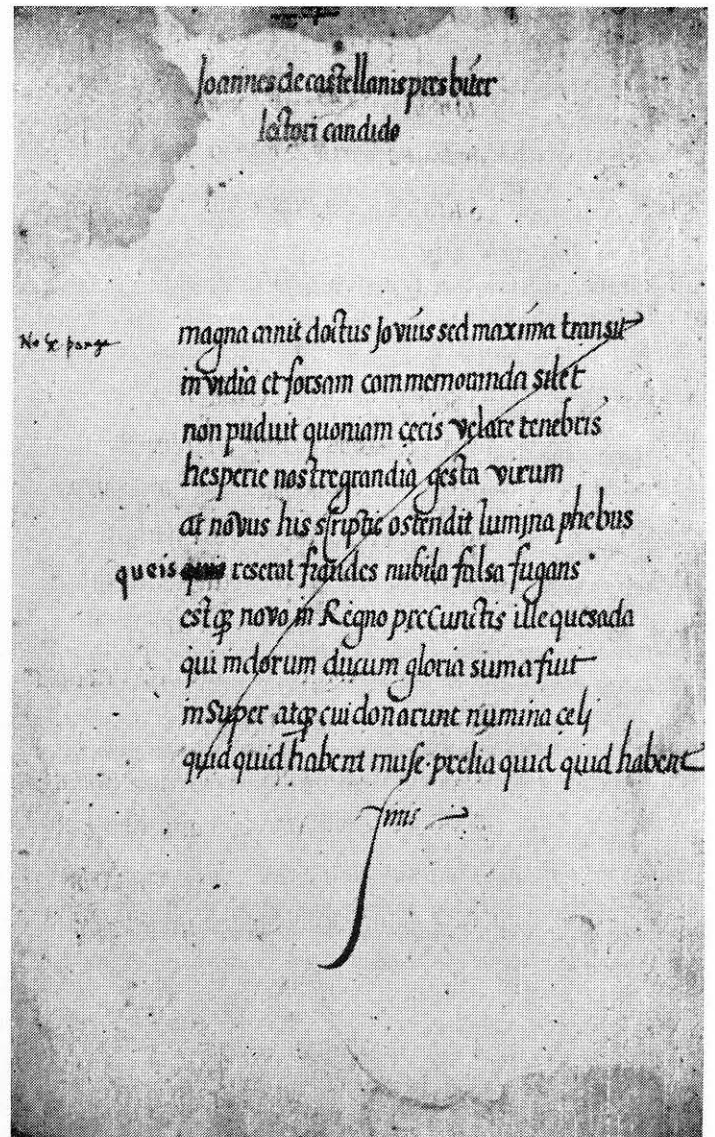 Joannes de castellanis presbiter
lectori candide
No se ponga
magna canit doctus Jovius sed maxima transit
invidia et forsam commemoranda silet
non puduit quoniam cecis velare tenebris
hesperie nostre grandia gesta virum
at novus his scriptis ostendit lumina phebus
queis reserat fraudes nubila falsa fugans
estq; novo in Regno pre Cunctis ille quesada
qui indorum ducum gloria suma fuit
in Super atq; cui donarunt numina celi
quid quid habent muse. prelia quid quid habent
finis